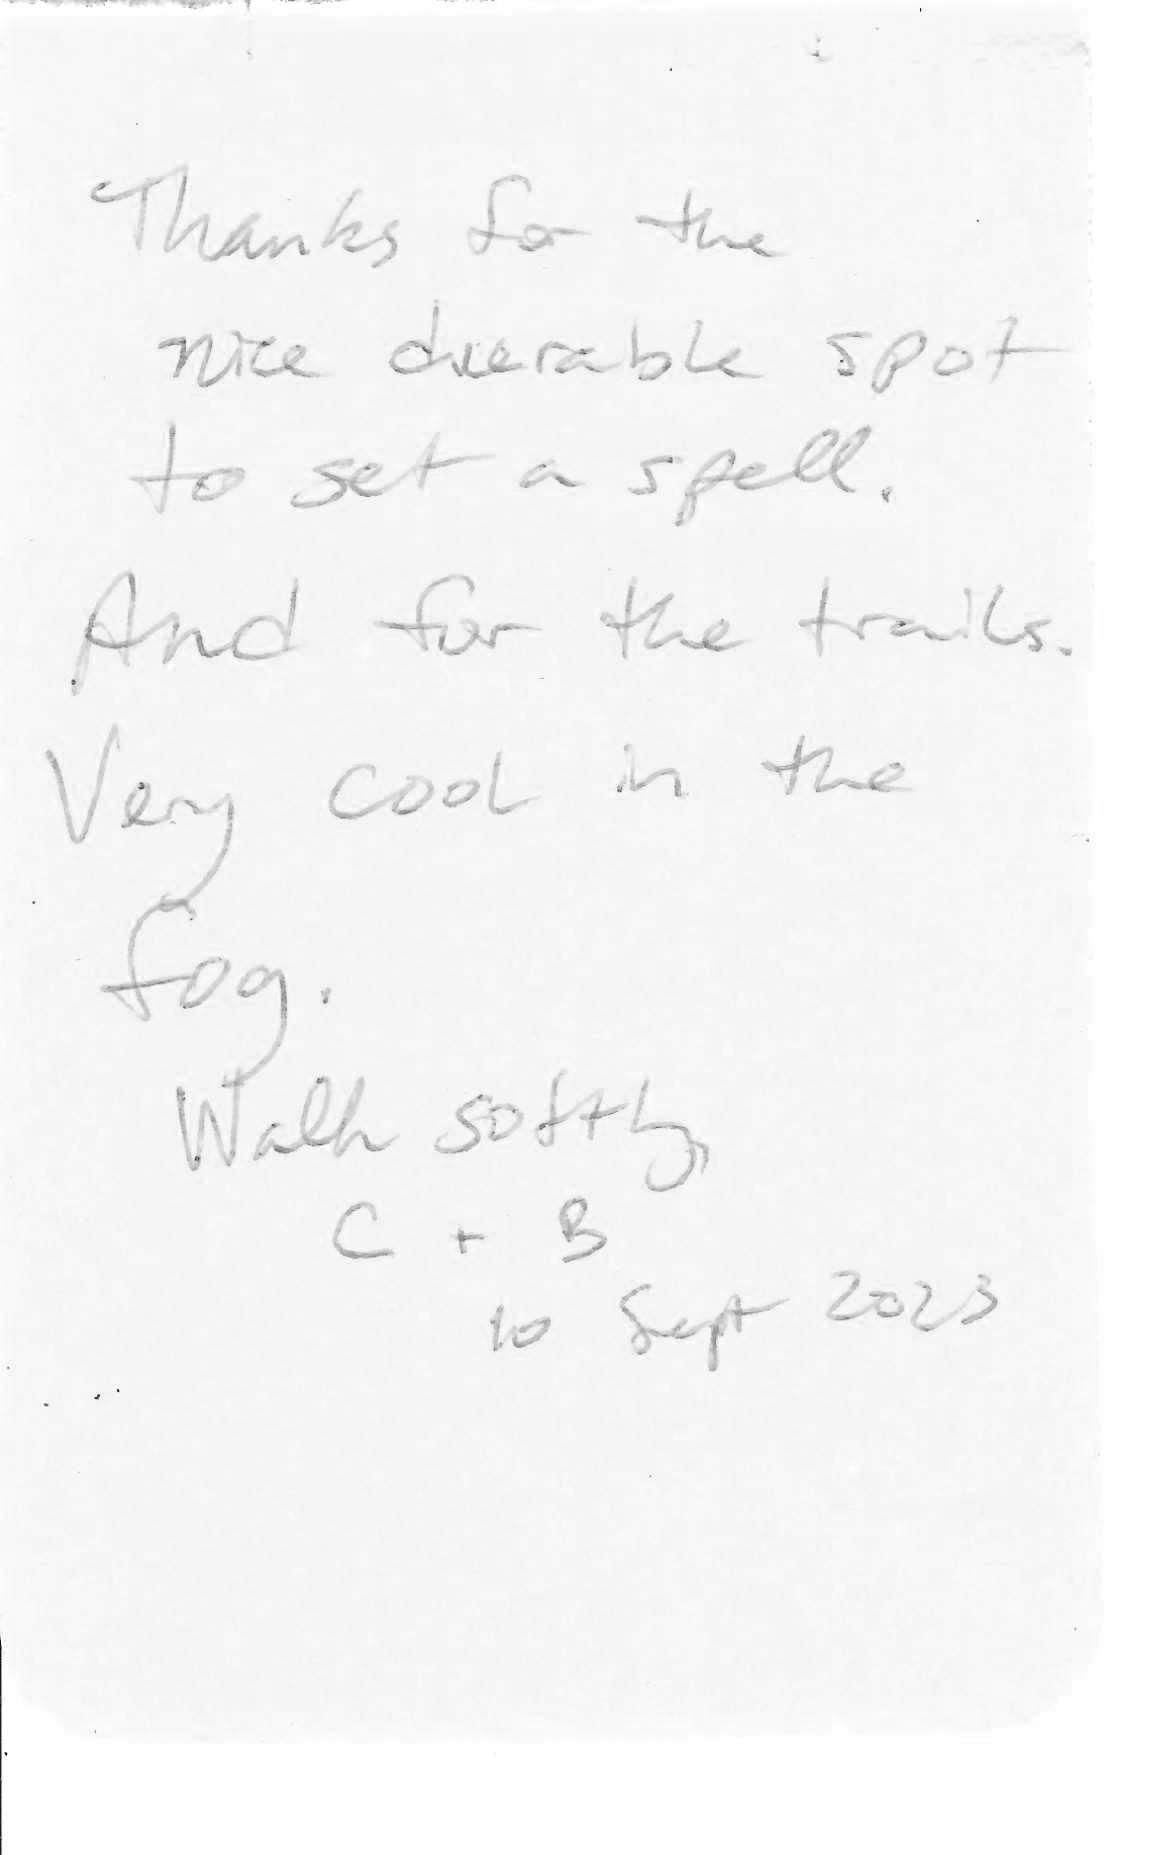 Thanks for the
nice duerable spot
to set a spell.
And for the trails.
Very cool in the
fog.
Walk softly,
C + B
10 Sept 2023